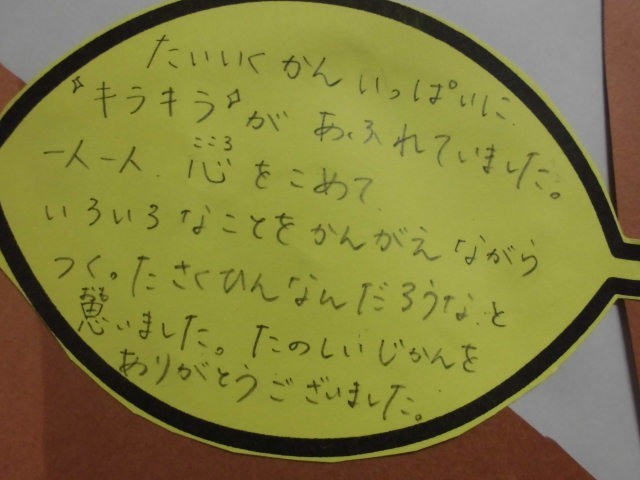 たいいくかんいっぱいに
"キラキラ"があふれていました。
一人一人 心をこめて
こころ
いろいろなことをかんがえながら
つく。たさくひんなんだろうなと
思いました。たのしいじかんを
おも
ありがとうございました。